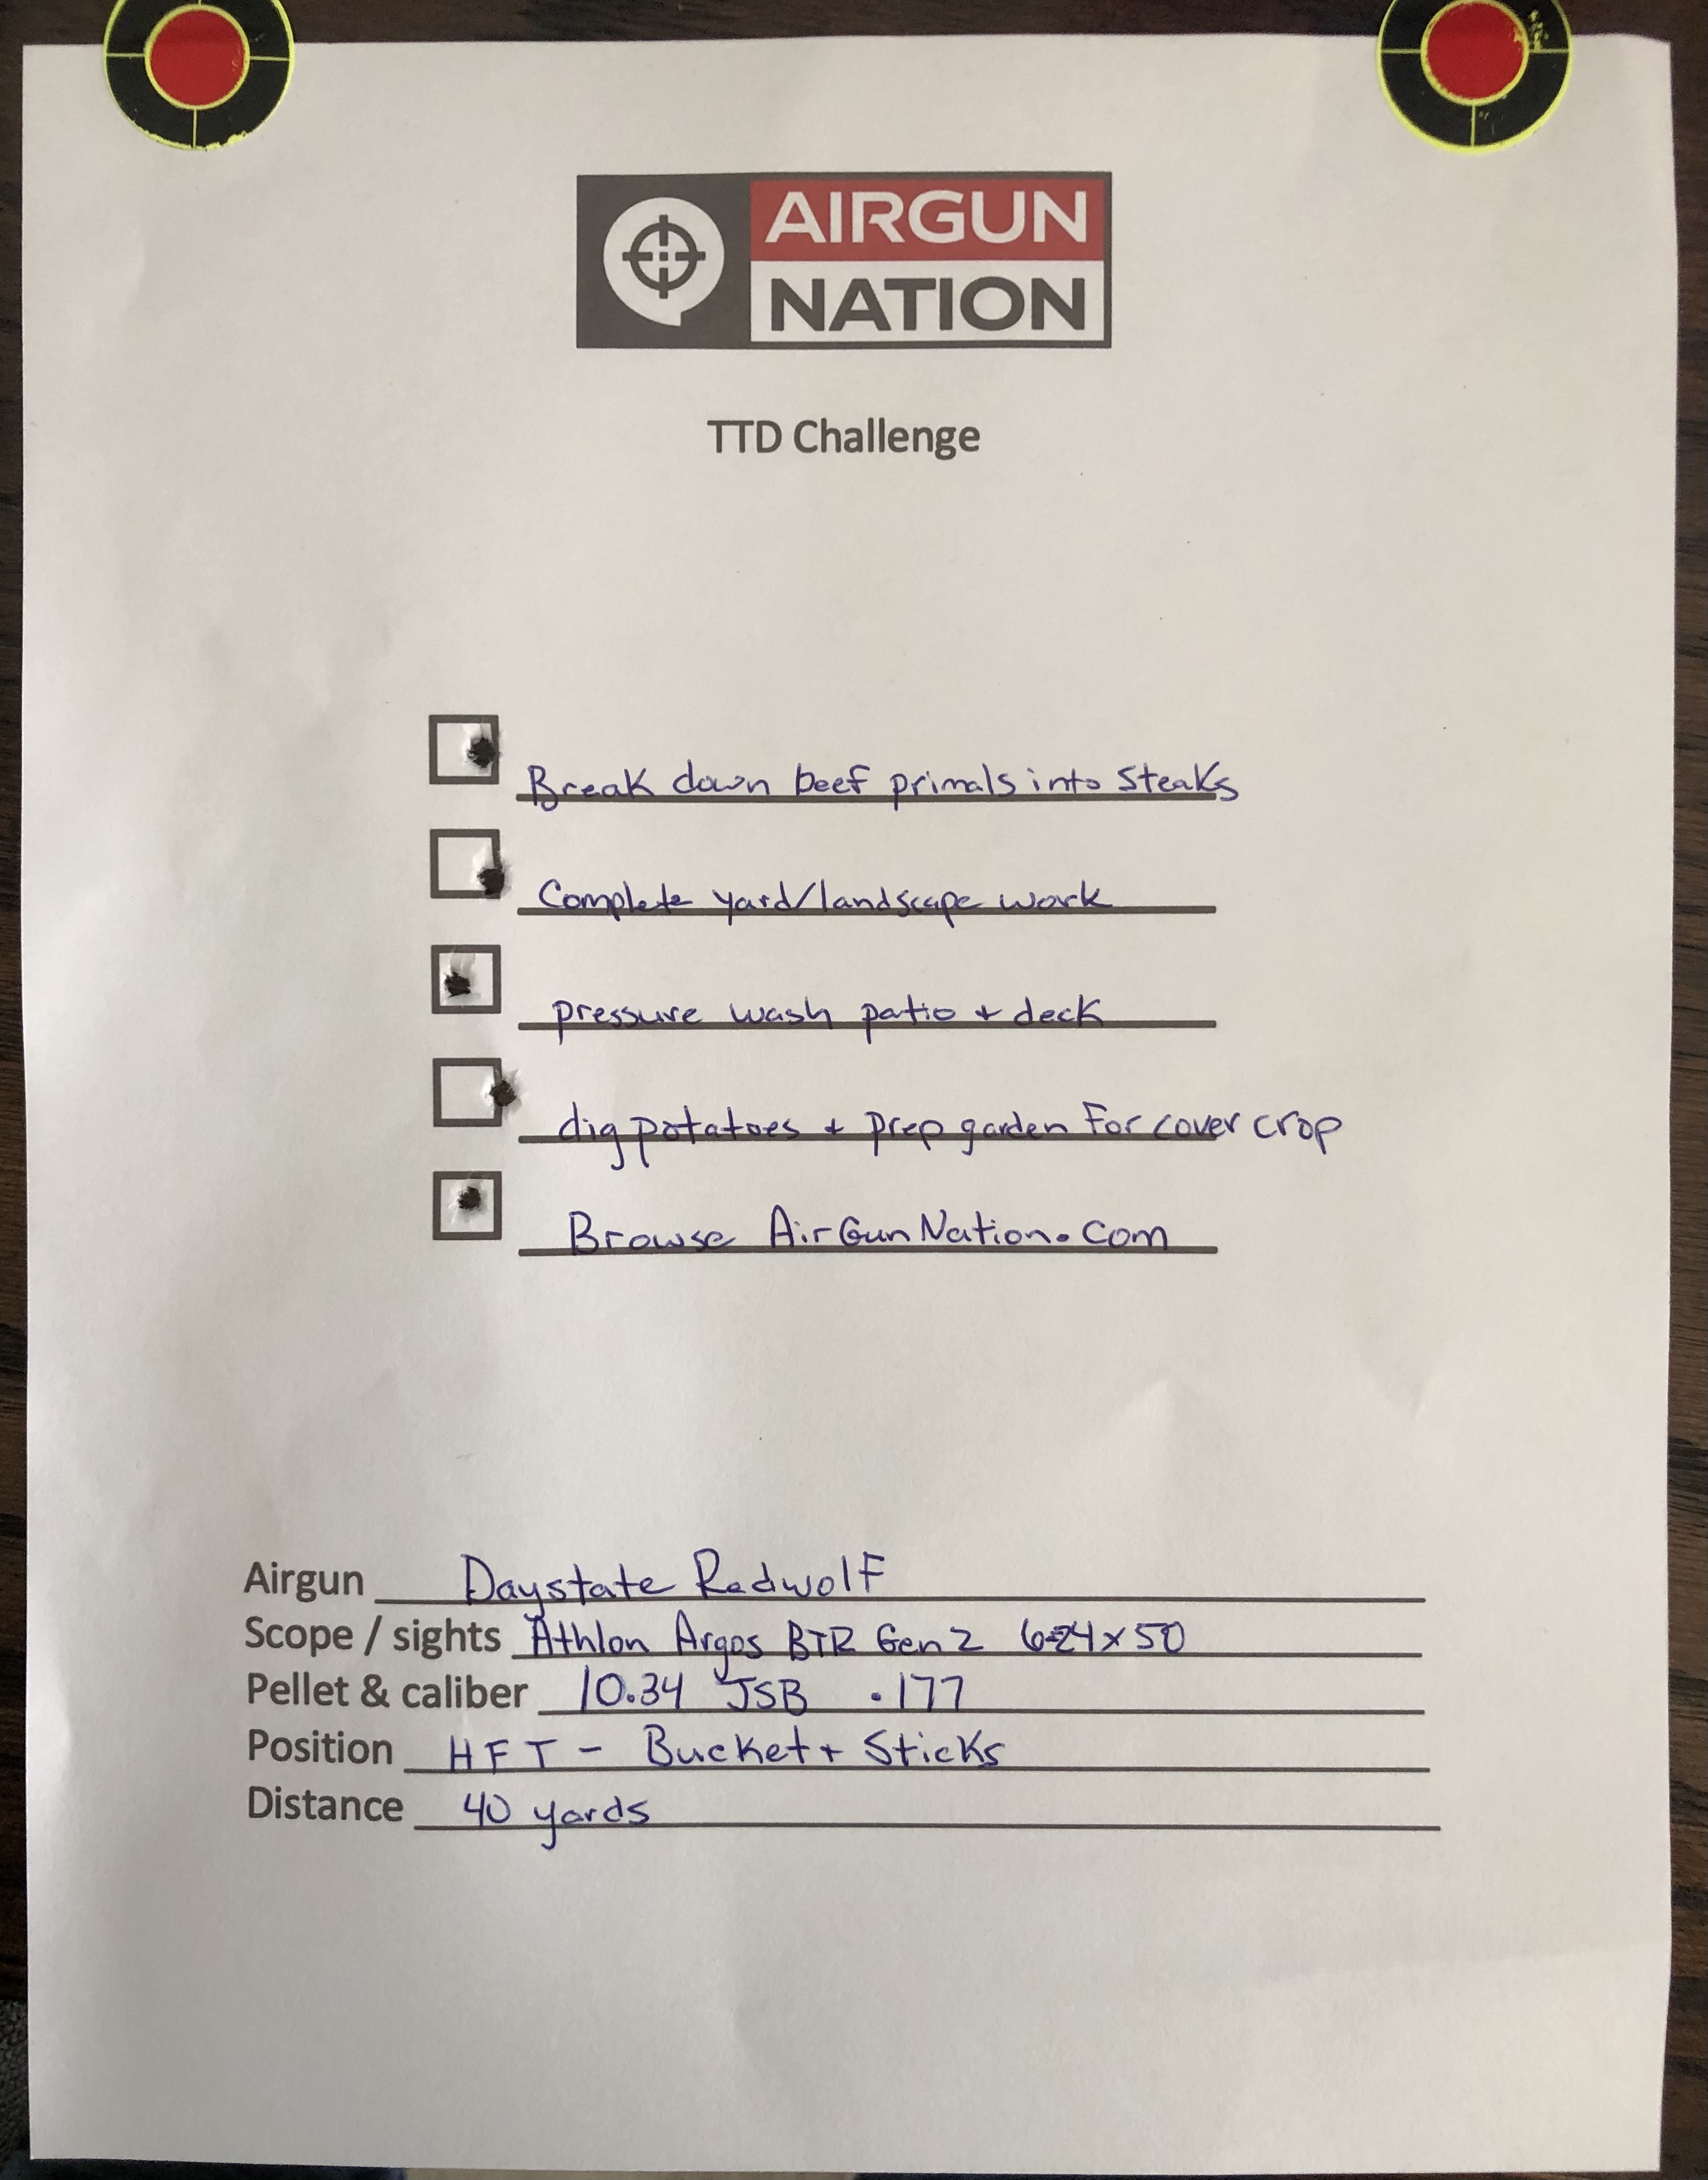 AIRGUN
NATION
TTD Challenge
Break down beef primals into steaks
Complete yard/landscape work
pressure wash patio + deck
dig potatoes + prep garden for cover crop
Browse AirGunNation.com
Airgun Daystate Redwolf
Scope / sights Athlon Argos BTR Gen 2 6-24x50
Pellet & caliber 10.34 JSB .177
Position HFT - Bucket + Sticks
Distance 40 yards